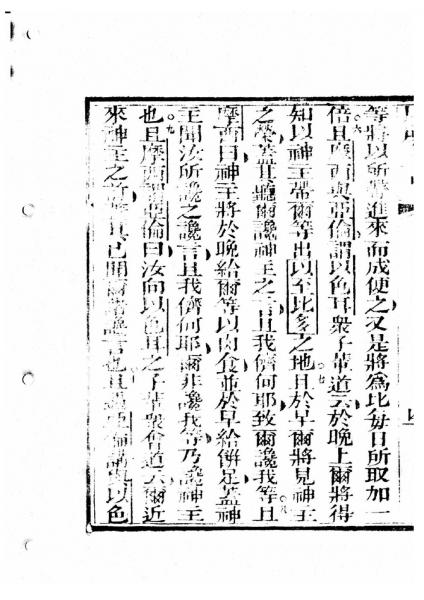 等將以所將進來而成使之又是將為比每日所取加一
倍且摩西與亞倫謂以色耳衆子輩道云於晚上爾將得
知以神主帶爾等出以至比多之地且於早爾將見神主
之榮蓋其聽爾讒神主之言且我儕何耶致爾讒我等且
摩西曰神主將於晚給爾等以肉食並於早給餅足蓋神
主聞汝所讒之讒言且我儕何耶爾非讒我等乃讒神主
也且摩西謂亞倫曰汝向以色耳之子輩衆會道云爾近
來神主之前蓋其已聞爾等讒言也且遇亞倫講與以色